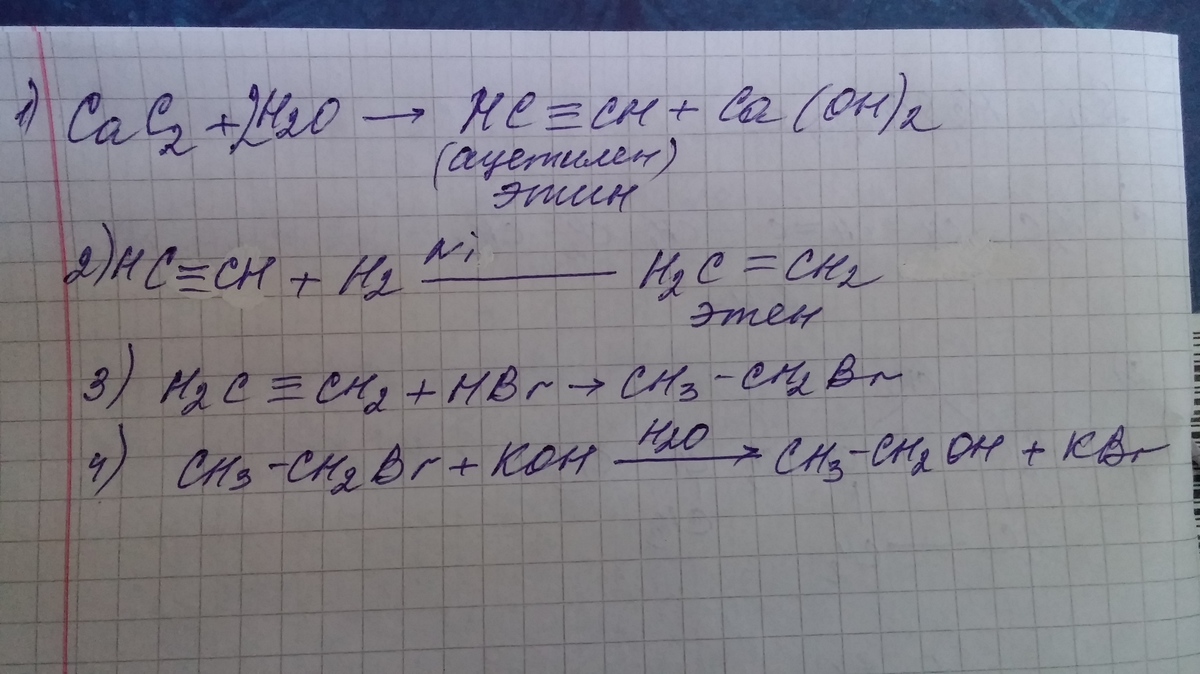 1) CaC₂ + 2H₂O → HC≡CH + Ca(OH)₂
(ацетилен)
этин
2) HC≡CH + H₂ —Ni— H₂C=CH₂
этен
3) H₂C≡CH₂ + HBr → CH₃-CH₂Br
4) CH₃-CH₂Br + KOH —H₂O→ CH₃-CH₂OH + KBr